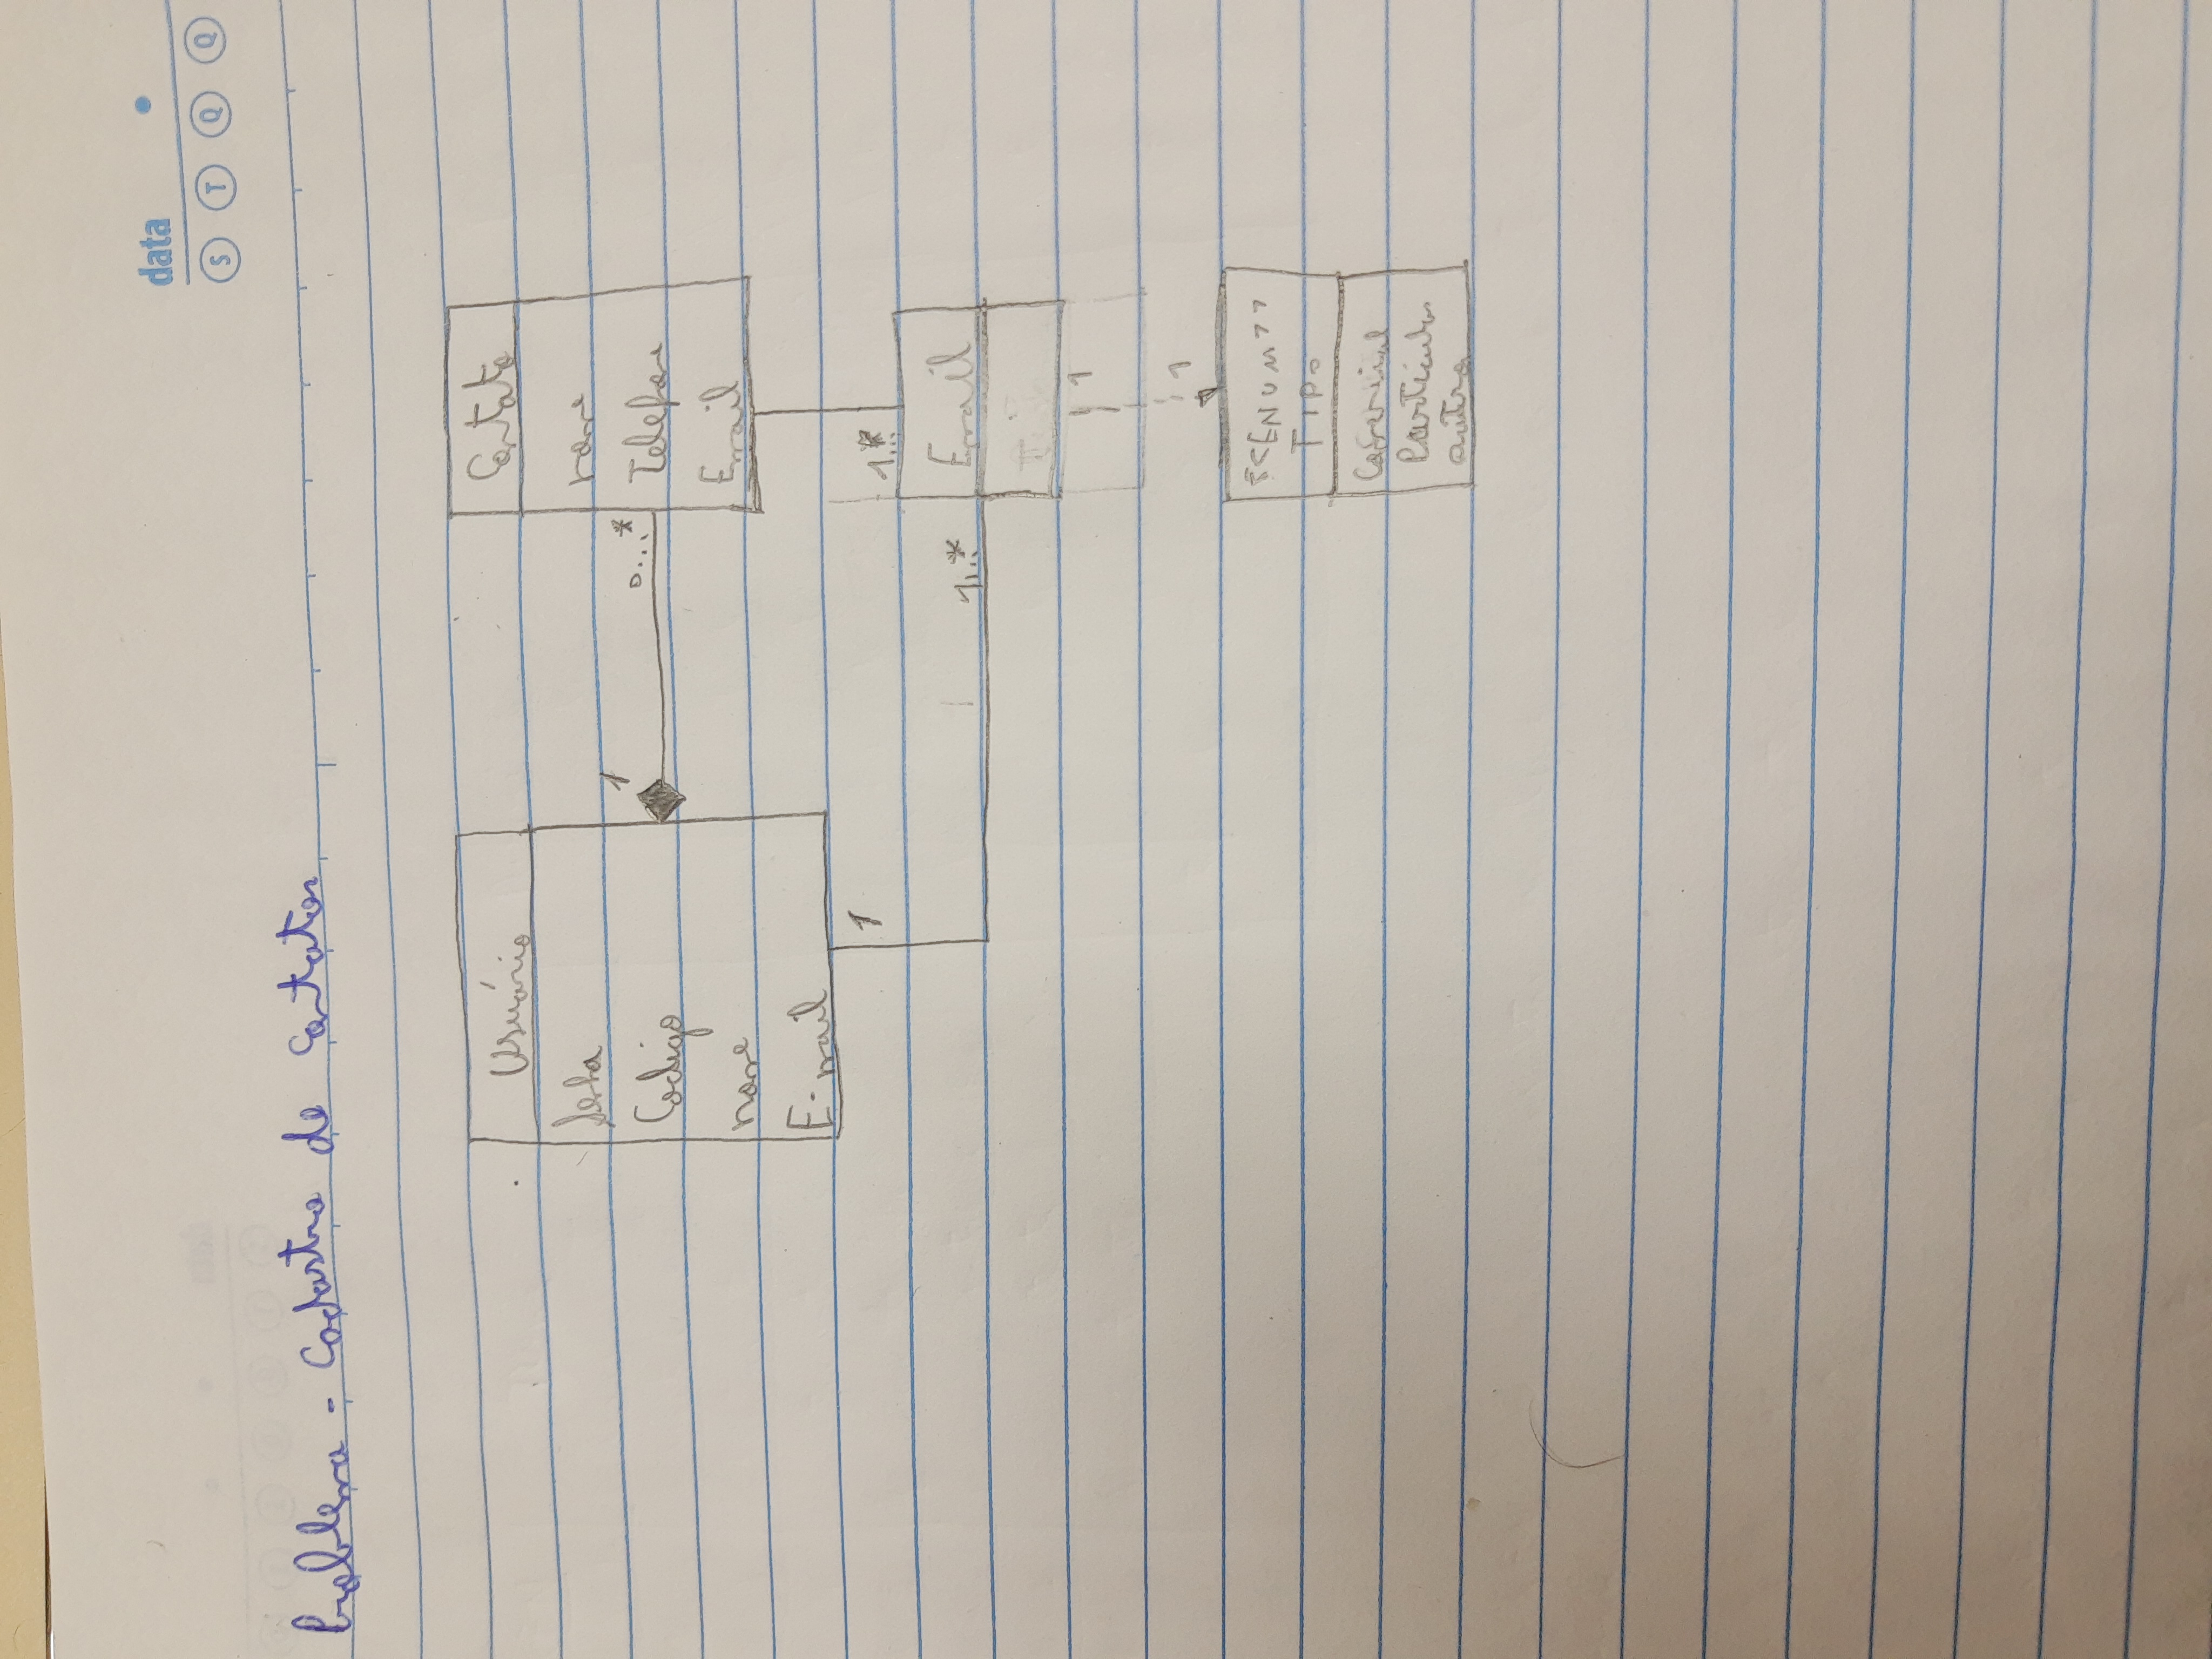 data
S T Q Q
Problema - Cadastro de Contatos
Usuário
Senha
Codigo
nome
E-mail
1
0...*
Contato
nome
Telefone
Email
1
1...*
1...*
Email
1
1
<<ENUM>>
TIPO
Comercial
Particular
outro